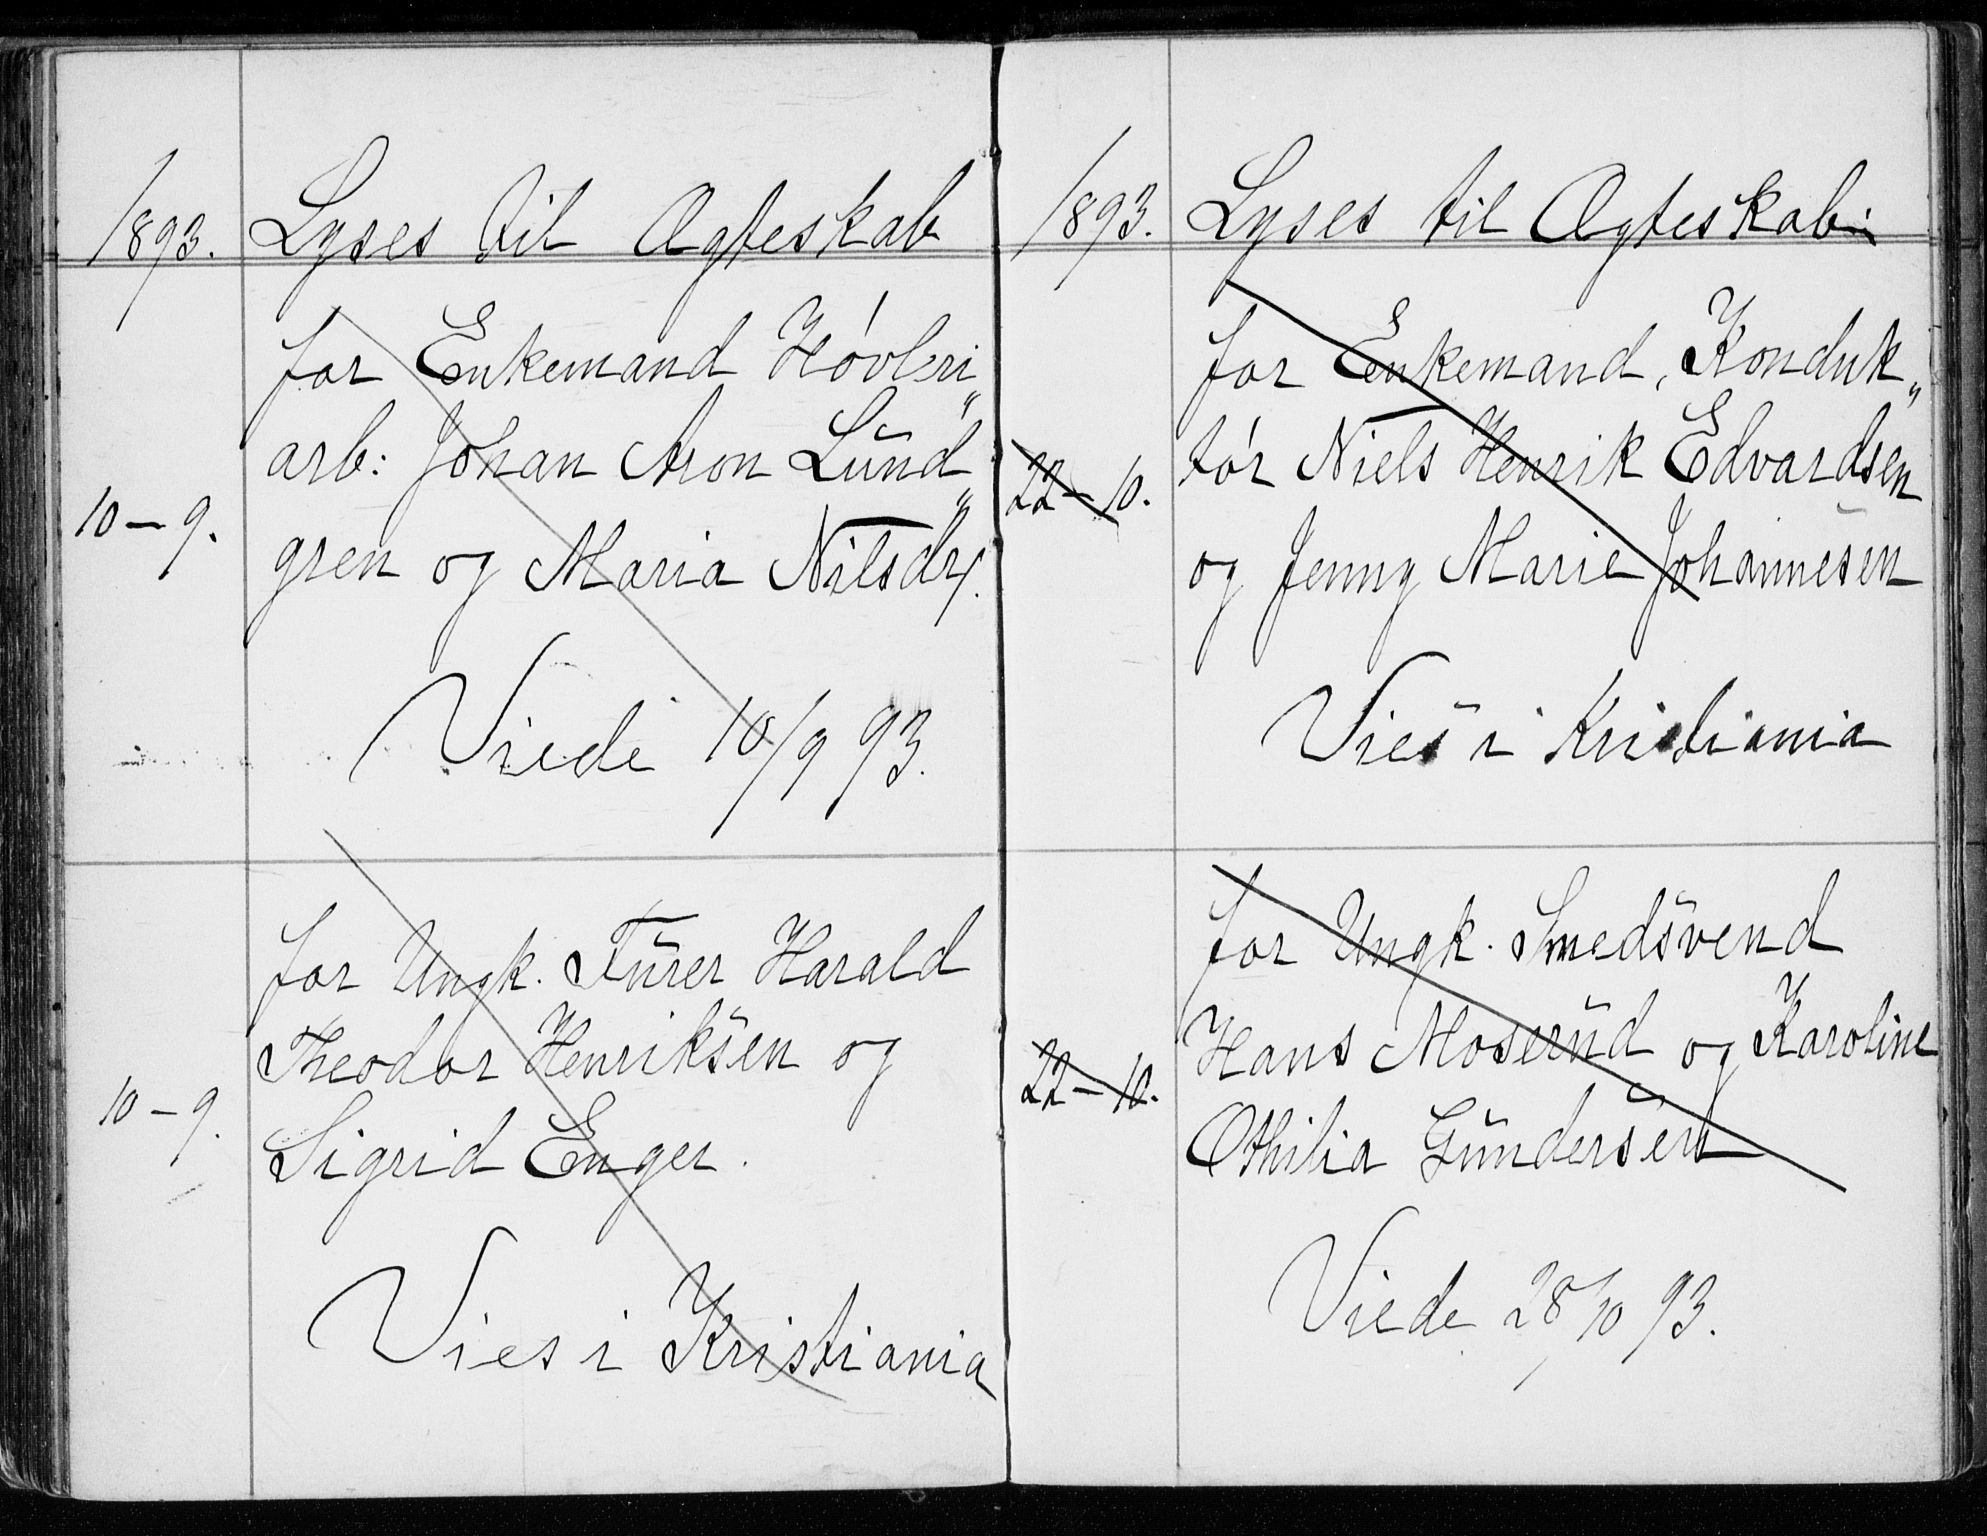 1893. Lyses til Ægteskab
for Enkemand Høvleri„
arb: Johan Aron Lund„
10-9. gren og Maria Nilsdr.
Viede 10/9 93.
for Ungk. Furer Harald
Theodor Henriksen og
10-9. Sigrid Enger.
Vies i Kristiania
1893. Lyses til Ægteskab:
for Enkemand, Konduk„
22-10. tør Niels Henrik Edvardsen
og Jenny Marie Johannesen
Vies i Kristiania
for Ungk. Smedsvend
22-10. Hans Moserud og Karoline
Othilia Gundersen
Viede 28/10 93.